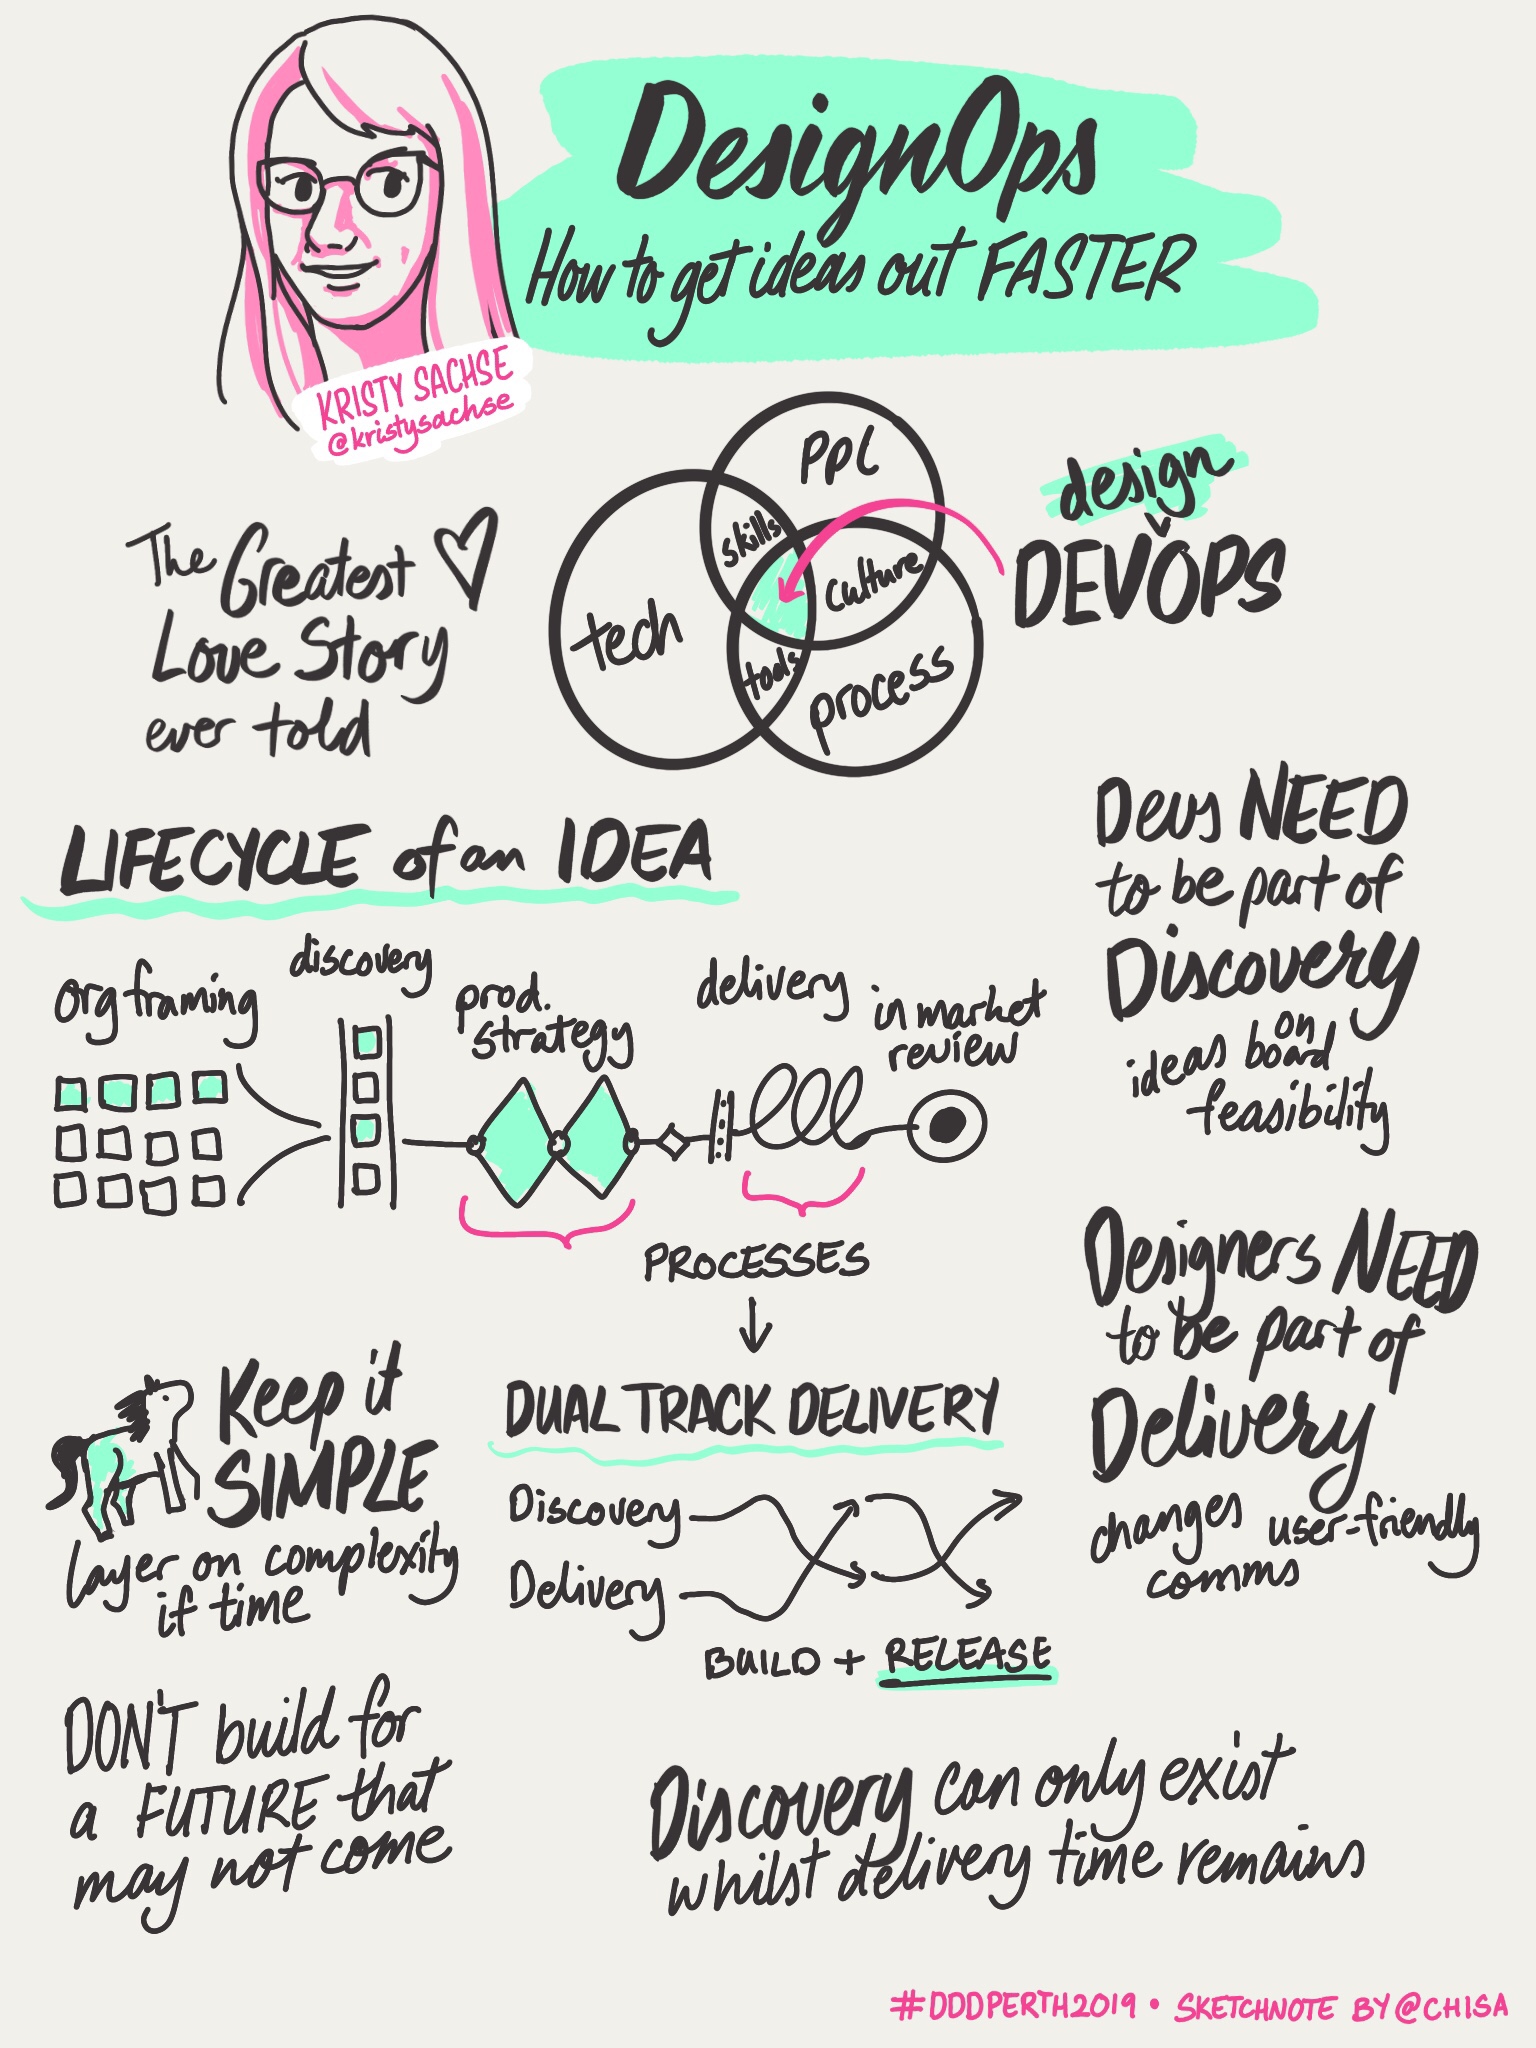 DesignOps
How to get ideas out FASTER
KRISTY SACHSE
@kristysachse
The Greatest
Love Story
ever told
ppl
skills
culture
tech
tools
process
design
DEVOPS
LIFECYCLE of an IDEA
org framing
discovery
prod.
strategy
delivery
in market
review
PROCESSES
Devs NEED
to be part of
Discovery
ideas on board
feasibility
Designers NEED
to be part of
Delivery
changes user-friendly
comms
Keep it
SIMPLE
layer on complexity
if time
DUAL TRACK DELIVERY
Discovery
Delivery
BUILD + RELEASE
DON'T build for
a FUTURE that
may not come
Discovery can only exist
whilst delivery time remains
#DDDPERTH2019 • SKETCHNOTE BY @CHISA